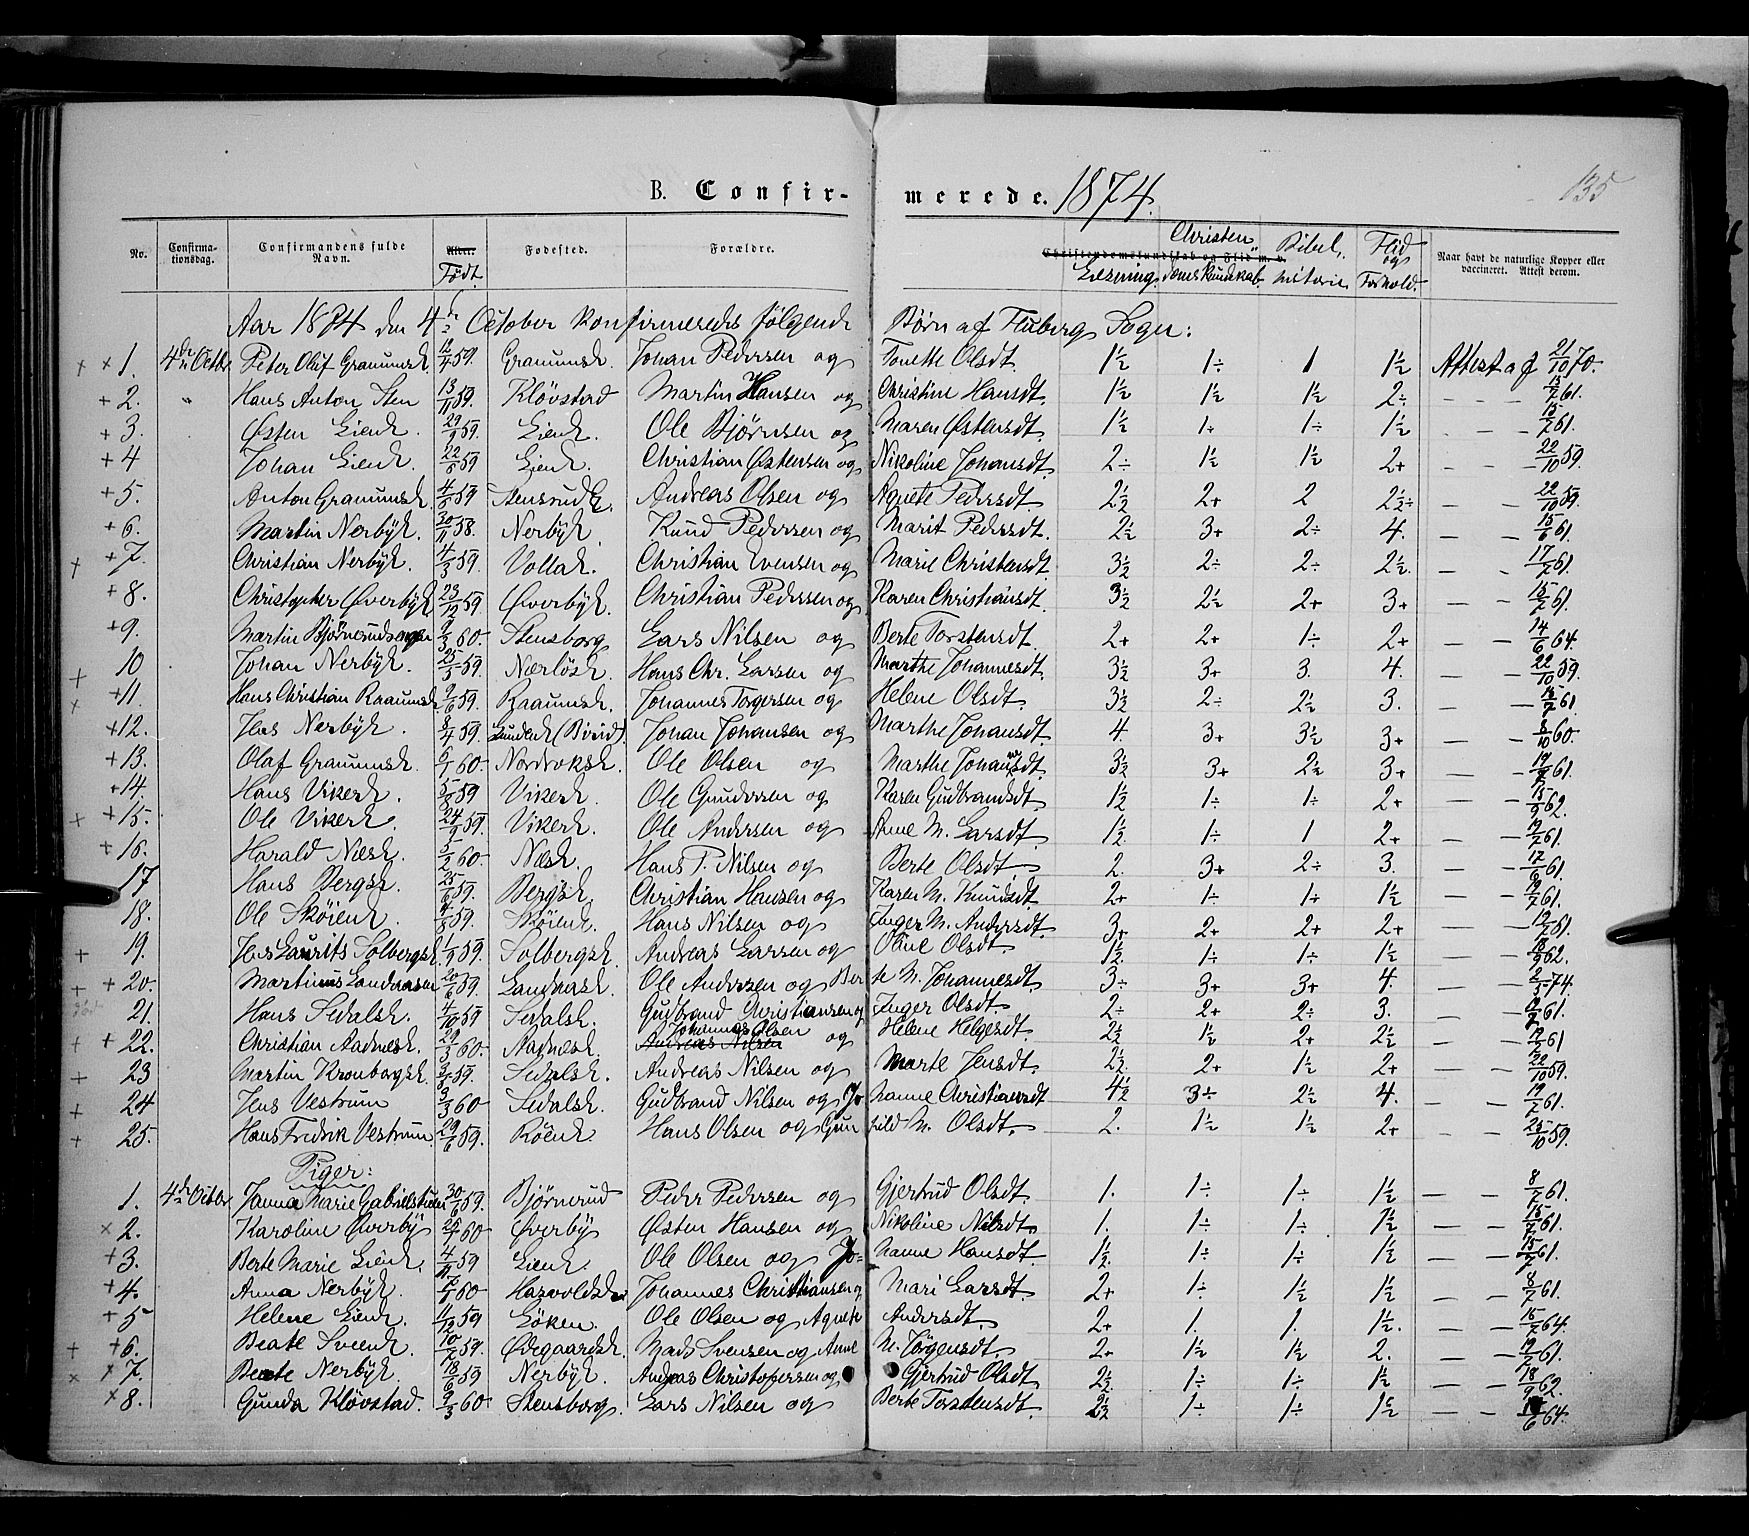 135
B. Confirmerede. 1874.
No. Confirmationsdag. Confirmandens fulde Navn. Alder. Født. Fødested. Forældre. Christendomskundskab og Flid m. v. Læsning Christendomskundskab Bibelhistorie Flid og Forhold. Naar havt de naturlige Kopper eller vaccineret. Attest derom.
Aar 1874 den 4de October konfirmeredes følgende Børn af Fluberg Sogn:
1. 4de Octbr Peter Oluf Granumsk. 12/4 59. Granumsk. Johan Pedersen og Tonette Olsdt. 1½ 1÷ 1 1½ Attest af 21/10 70.
2. " Hans Anton Sten 13/11 59. Kløvstad Martin Hansen og Christine Hansdt. 1½ 1½ 1½ 2÷ - - - 15/7 61.
3. Østen Lienk. 29/9 59. Lienk. Ole Bjørnsen og Maren Østensdt. 1½ 1÷ 1÷ 1½ - - - 15/7 61.
4 Johan Lienk. 22/5 59 Lienk. Christian Østensen og Nikoline Johansdt. 2÷ 1½ 1½ 2+ - - - 22/10 59.
5. Anton Granumsk. 4/5 59 Stensrud E. Andreas Olsen og Agnete Pedersdt. 2½ 2+ 2 2½÷ - - 22/10 59.
6. Martin Nerbyk. 30/11 58. Nerbyk. Knud Pedersen og Marit Pedersdt. 2½ 3+ 2÷ 4. - - 15/6 61.
7. Christian Nerbyk. 4/3 59. Vollak. Christian Evensen og Marie Christensdt. 3½ 2÷ 2÷ 2½. - - 17/7 61.
8. Christopher Øverbyk. 23/12 59. Øverbyk. Christian Pedersen og Karen Christiansdt. 3½ 2½ 2+ 3+ - - 15/7 61.
9. Martin Bjørnerudsengen 9/3 60. Stensborg Lars Nilsen og Berte Torstensdt. 2+ 2+ 1÷ 2+ - - 14/6 64.
10 Johan Nerbyk. 25/5 59. Nærløsk. Hans Chr. Larsen og Marthe Johannesdt. 3½ 3+ 3. 4. - - 22/10 59.
11. Hans Christian Raaumsk. 2/6 59. Raaumsk. Johannes Torgersen og Helene Olsdt. 3½ 2÷ 2½ 3. - - 14/7 61.
12. Jens Nerbyk. 8/4 59. Lundenk (Birid). Johan Johansen og Marthe Johansdt. 4 3+ 3½ 3+ - - 8/10 60.
13. Olaf Granumsk. 6/1 60. Nordvoksk. Ole Olsen og Marthe Johannesdt. 3½ 3+ 2½ 3+ - - 19/7 61.
14. Hans Vikerk. 5/8 59 Vikerk. Ole Gundersen og Karen Gudbrandsdt. 1½ 1÷ 1÷ 2+ - - 15/9 62.
15. Ole Vikerk. 24/9 59. Vikerk. Ole Andersen og Anne M. Larsdt. 1½. 1÷ 1 2+ - - 19/7 61.
16. Harald Næsk. 5/2 60. Næsk. Hans P. Nilsen og Berte Olsdt. 2. 3+ 2÷ 3. - - 17/6 61.
17 Hans Bergsk. 25/6 59. Bergsk. Christian Hansen og Karen M. Knudsdt. 2+ 1÷ 1+ 1½ - - 19/7 61.
18. Ole Skøienk. 4/8 59. Skøienk. Hans Nilsen og Inger M. Andersdt. 3+ 2+ 2+ 2+ - - 19/7 61.
19. Jens Laurits Solbergsk. 1/9 59. Solbergsk. Andreas Larsen og Oline Olsdt. 1½. 1÷ 1÷ 1½ - - 18/9 62.
20. Martinus Landaasen 20/6 59. Landaask. Ole Andersen og Berte M. Johannesdt. 3÷ 3+ 3+ 4. - - 2/5 74.
21. Hans Sedalsk. 4/10 59 Sedalsk. Gudbrand Christiansen og Inger Olsdt. 2÷ 2+ 2÷ 3. - - 19/7 61.
22. Christian Aadnæsk. 29/3 60. Aadnæsk. Andreas Nilsen Johannes Olsen og Helene Helgesdt. 2½ 1½ 2+ 2½ - - 19/7 61
23 Martin Kronborgsk. 3/8 59. Sedalsk. Andreas Nilsen og Marte Jensdt. 2½. 2+ 1½ 2+ - - 22/10 59.
24 Jens Vestrum 3/3 60 Sedalsk. Gudbrand Nilsen og Johanne Christiansdt 4½ 3÷ 2½ 4. - - 19/7 61.
25. Hans Fredrik Vestrum 29/6 59. Røenk. Hans Olsen og Gunhild M. Olsdt. 2. 1½ 1½ 2+ - - 25/10 59.
Piger:
1. 4de Octbr. Janna Marie Gabrielstuen 30/6 59. Bjørnerud Peder Pedersen og Gjertrud Olsdt. 1. 1÷ 1÷ 1½ - - 8/7 61.
2. Karoline Øverby 25/1 60 Øverby Østen Hansen og Nikoline Nilsdt. 1. 1÷ 1÷ 1½ - - 15/7 61.
3. Berte Marie Lienk. 4/11 59 Lienk Ole Olsen og Johanne Hansdt. 1½. 1÷ 1÷ 1½ - - 15/7 61.
4. Anna Nerbyk. 7/1 60 Johannes Christiansen og Mari Larsdt. 2+ 1÷ 1½ 1½ - - 8/7 61.
5 Helene Lienk. 4/12 59 Løken. Ole Olsen og Agnete Andersdt. 2+ 1. 1. 1½. - - 15/7 64.
6. Beate Sveenk. 10/7 59. Ødegaardsk. Mads Svensen og Anne M. Jørgensdt. 2+ 1½ 1½ 2. - - 19/7 61.
7. Beate Nerbyk. 18/6 59 Nerbyk. Andreas Christophersen og Gjertrud Olsdt 2½. 1÷ 1÷ 1½ - - 18/9 62.
8. Gunda Kløvstad. 9/3 60 Stensborg. Lars Nilsen og Berte Torstensdt. 2½ 1+ 1÷ 1½ - - 14/6 64.